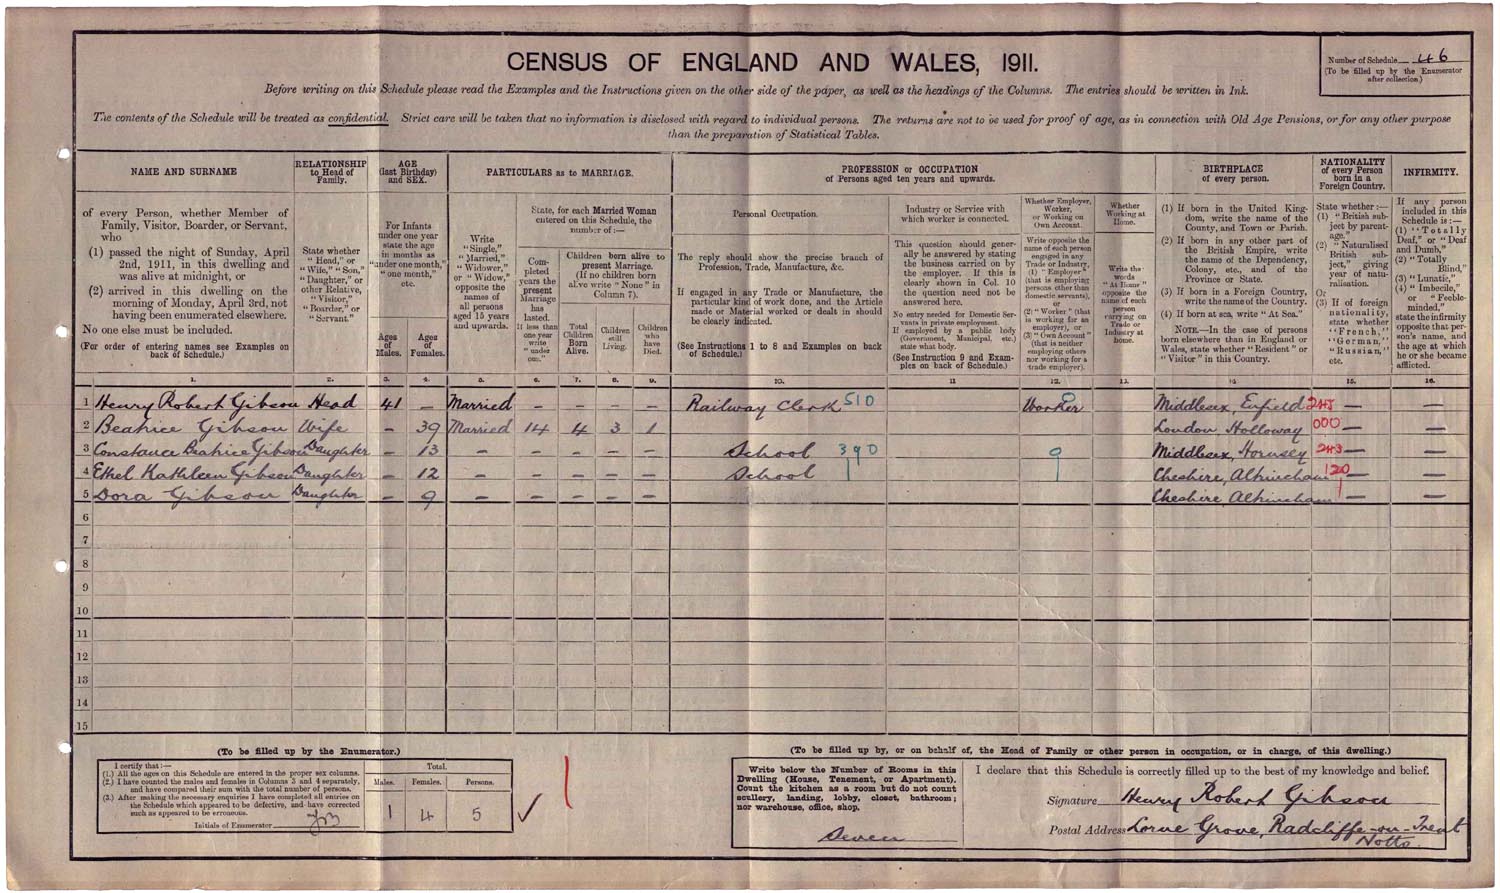 CENSUS OF ENGLAND AND WALES, 1911.
Number of Schedule 46
(To be filled up by the Enumerator
after collection.)
Before writing on this Schedule please read the Examples and the Instructions given on the other side of the paper, as well as the headings of the Columns. The entries should be written in Ink.
The contents of the Schedule will be treated as confidential. Strict care will be taken that no information is disclosed with regard to individual persons. The returns are not to be used for proof of age, as in connection with Old Age Pensions, or for any other purpose
than the preparation of Statistical Tables.
NAME AND SURNAME
of every Person, whether Member of
Family, Visitor, Boarder, or Servant,
who
(1) passed the night of Sunday, April
2nd, 1911, in this dwelling and
was alive at midnight, or
(2) arrived in this dwelling on the
morning of Monday, April 3rd, not
having been enumerated elsewhere.
No one else must be included.
(For order of entering names see Examples on
back of Schedule.)
RELATIONSHIP
to Head of
Family.
State whether
"Head," or
"Wife," "Son,"
"Daughter," or
other Relative,
"Visitor,"
"Boarder," or
"Servant."
AGE
(last Birthday)
and SEX.
For Infants
under one year
state the age
in months as
"under one month,"
"one month,"
etc.
Ages
of
Males.
Ages
of
Females.
PARTICULARS as to MARRIAGE.
Write
"Single,"
"Married,"
"Widower,"
or "Widow,"
opposite the
names of
all persons
aged 15 years
and upwards.
State, for each Married Woman
entered on this Schedule, the
number of:—
Com-
pleted
years the
present
Marriage
has
lasted.
If less than
one year
write
"under
one."
Children born alive to
present Marriage.
(If no children born
alive write "None" in
Column 7).
Total
Children
Born
Alive.
Children
still
Living.
Children
who
have
Died.
PROFESSION or OCCUPATION
of Persons aged ten years and upwards.
Personal Occupation.
The reply should show the precise branch of
Profession, Trade, Manufacture, &c.
If engaged in any Trade or Manufacture, the
particular kind of work done, and the Article
made or Material worked or dealt in should
be clearly indicated.
(See Instructions 1 to 8 and Examples on back
of Schedule.)
Industry or Service with
which worker is connected.
This question should gener-
ally be answered by stating
the business carried on by
the employer. If this is
clearly shown in Col. 10
the question need not be
answered here.
No entry needed for Domestic Ser-
vants in private employment.
If employed by a public body
(Government, Municipal, etc.)
state what body.
(See Instruction 9 and Exam-
ples on back of Schedule.)
Whether Employer,
Worker,
or Working on
Own Account.
Write opposite the
name of each person
engaged in any
Trade or Industry,
(1) "Employer"
(that is employing
persons other than
domestic servants),
or
(2) "Worker" (that
is working for an
employer), or
(3) "Own Account"
(that is neither
employing others
nor working for a
trade employer).
Whether
Working at
Home.
Write the
words
"At Home"
opposite the
name of each
person
carrying on
Trade or
Industry at
home.
BIRTHPLACE
of every person.
(1) If born in the United King-
dom, write the name of the
County, and Town or Parish.
(2) If born in any other part of
the British Empire, write
the name of the Dependency,
Colony, etc., and of the
Province or State.
(3) If born in a Foreign Country,
write the name of the Country.
(4) If born at sea, write "At Sea."
NOTE.—In the case of persons
born elsewhere than in England or
Wales, state whether "Resident" or
"Visitor" in this Country.
NATIONALITY
of every Person
born in a
Foreign Country.
State whether:—
(1) "British sub-
ject by parent-
age,"
(2) "Naturalised
British sub-
ject," giving
year of natu-
ralisation.
Or
(3) If of foreign
nationality,
state whether
"French,"
"German,"
"Russian,"
etc.
INFIRMITY.
If any person
included in this
Schedule is:—
(1) "Totally
Deaf," or "Deaf
and Dumb,"
(2) "Totally
Blind,"
(3) "Lunatic,"
(4) "Imbecile,"
or "Feeble-
minded,"
state the infirmity
opposite that per-
son's name, and
the age at which
he or she became
afflicted.
1. 2. 3. 4. 5. 6. 7. 8. 9. 10. 11 12. 13. 14. 15. 16.
1 Henry Robert Gibson Head 41 — Married — — — — Railway Clerk 510 Worker 0 Middlesex, Enfield 245 — —
2 Beatrice Gibson Wife — 39 Married 14 4 3 1 London Holloway 000 — —
3 Constance Beatrice Gibson Daughter — 13 — — — — — School 390 9 Middlesex, Hornsey 243 — —
4 Ethel Kathleen Gibson Daughter — 12 — — — — — School Cheshire, Altrincham 120 — —
5 Dora Gibson Daughter — 9 — — — — — Cheshire Altrincham — —
6
7
8
9
10
11
12
13
14
15
(To be filled up by the Enumerator.)
I certify that:—
(1.) All the ages on this Schedule are entered in the proper sex columns.
(2.) I have counted the males and females in Columns 3 and 4 separately,
and have compared their sum with the total number of persons.
(3.) After making the necessary enquiries I have completed all entries on
the Schedule which appeared to be defective, and have corrected
such as appeared to be erroneous.
Initials of Enumerator
Total.
Males. Females. Persons.
1 4 5
(To be filled up by, or on behalf of, the Head of Family or other person in occupation, or in charge, of this dwelling.)
Write below the Number of Rooms in this
Dwelling (House, Tenement, or Apartment).
Count the kitchen as a room but do not count
scullery, landing, lobby, closet, bathroom;
nor warehouse, office, shop.
Seven
I declare that this Schedule is correctly filled up to the best of my knowledge and belief.
Signature Henry Robert Gibson
Postal Address Lorne Grove, Radcliffe-on-Trent
Notts.